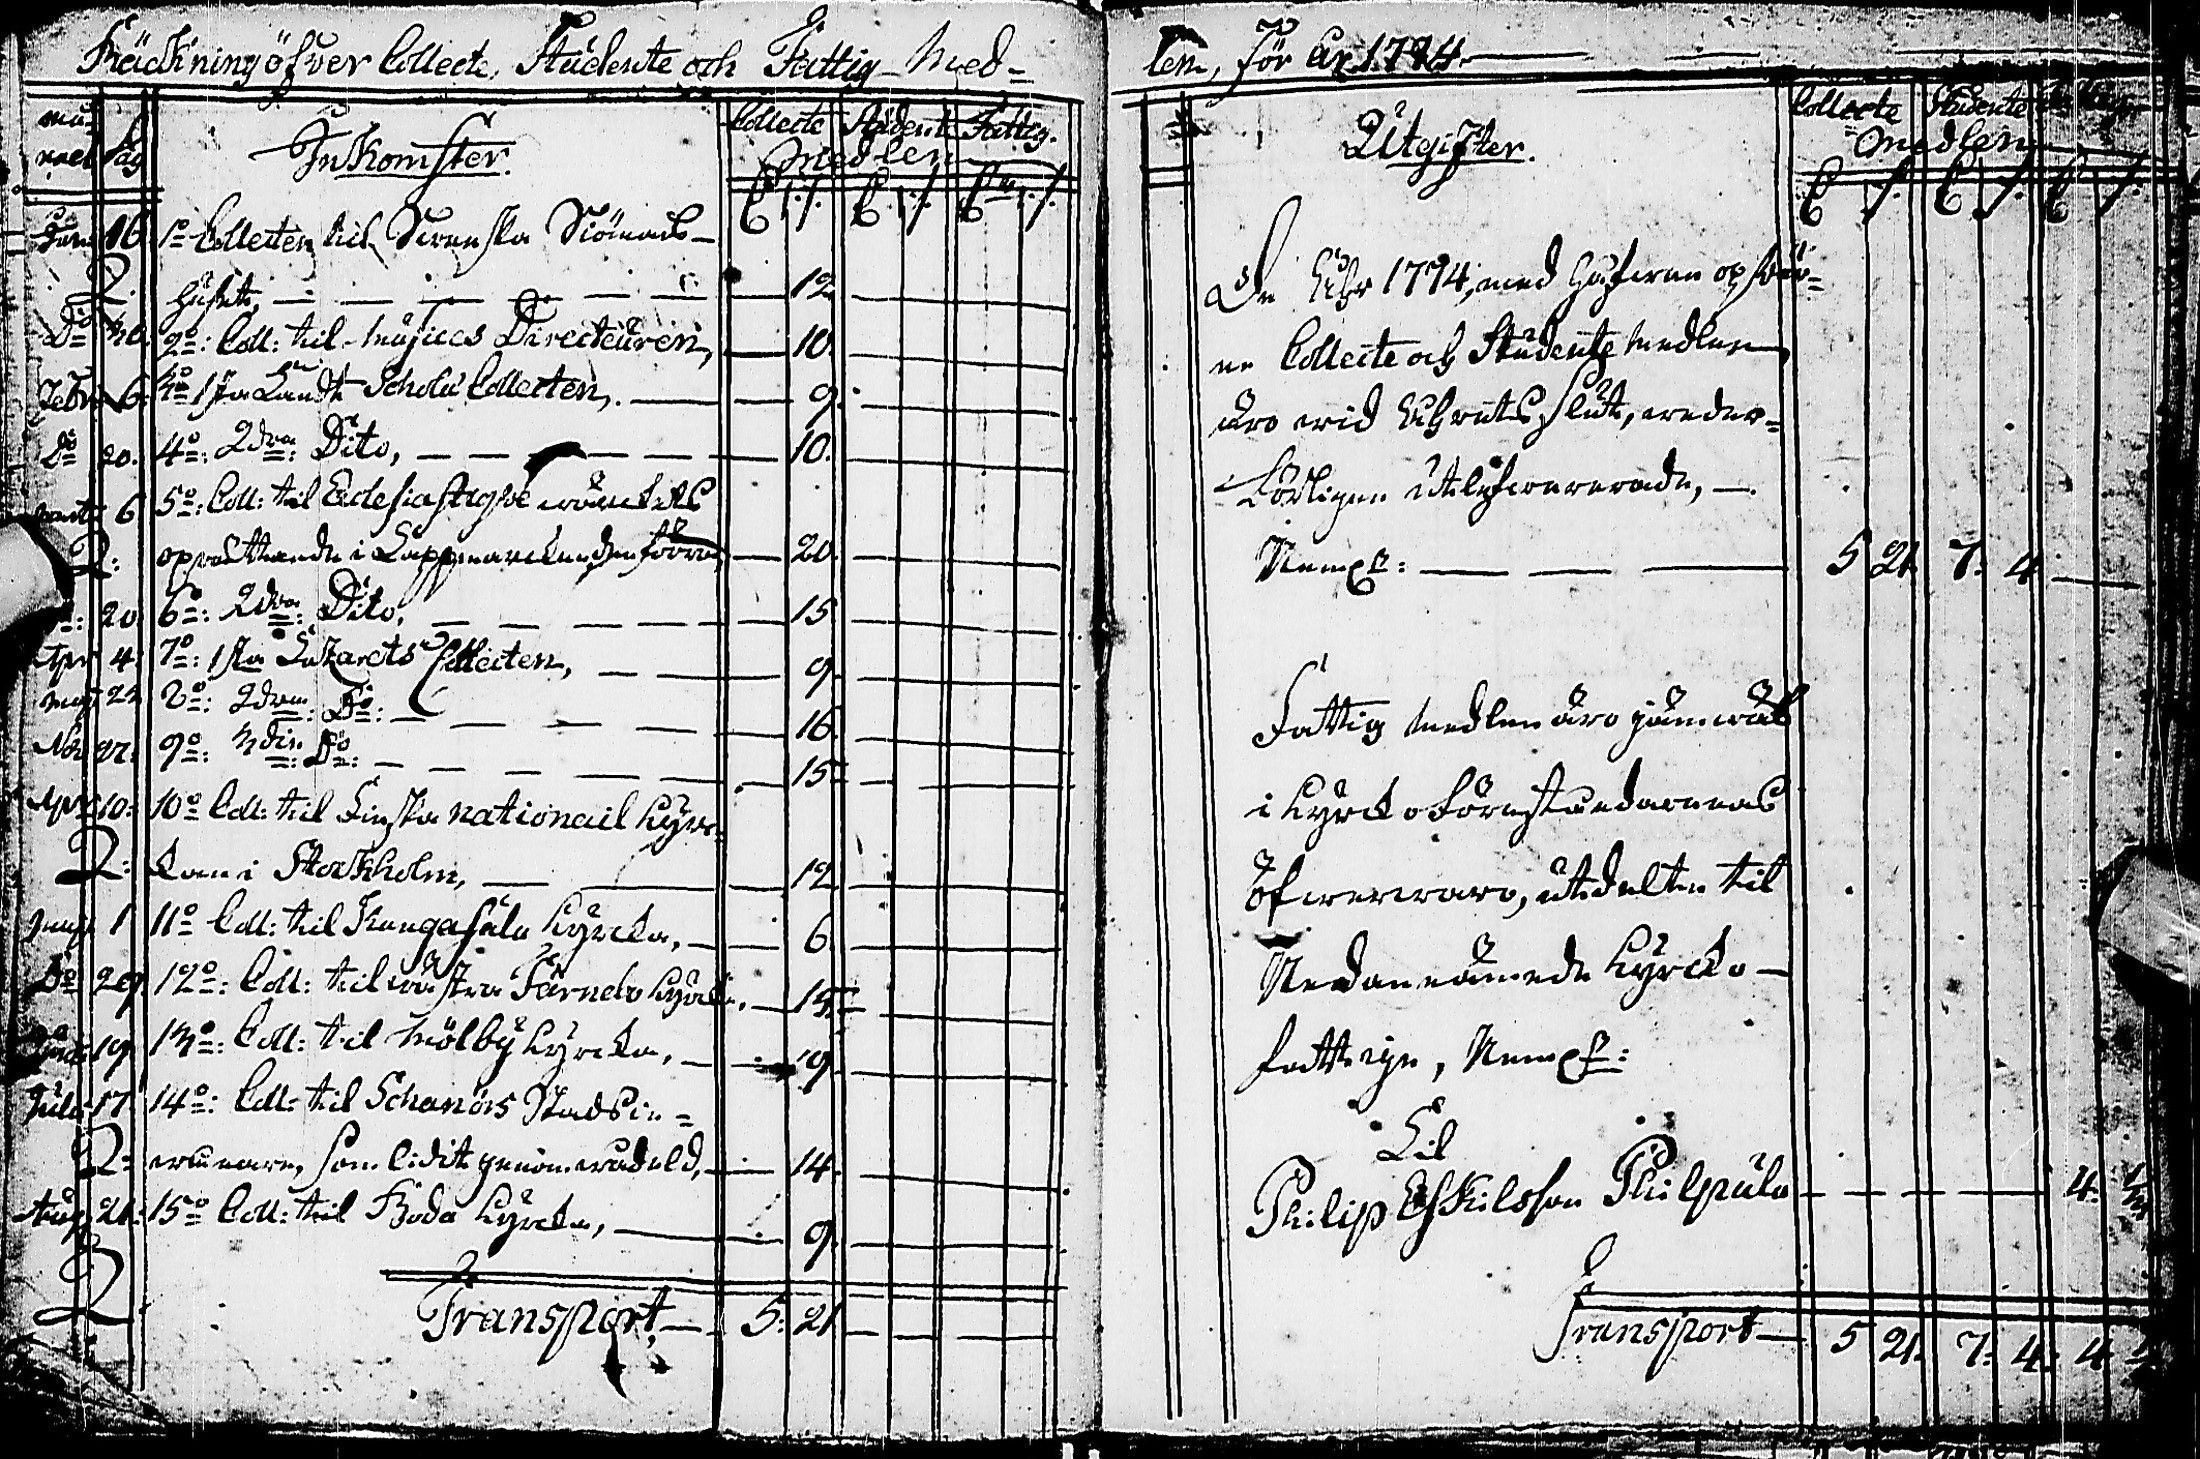 Räckning öfver Collecte, Studente och Fattig-Med=
len, för År 1774.
Må=
nad Dag Inkomster. Collecte Student Fattig.
Medlen
Jan: 16 1o Collecten til Swenska Siömans-
huset, 12
Do 30. 2o: Coll: til Musices Directeuren, 10.
Febr: 6. 3o 1sta Landt Schola Collecten, 9.
Do 20. 4o: 2dra Dito, 10.
Marti 6 5o: Coll: til Ecclesiastique wärckets
oprättande i Lappmarcken, den förra, 20.
20 6o: 2dra: Dito, 15
Apr 4 7o: 1sta Lazarets Collecten, 9
Maji 22 8o: 2dra: Do: 16
Nov: 27. 9o: 3die. Do: 15
Apr: 10: 10o Coll: til Finska national Kyrc-
kan i Stockholm, 12
Maji 1 11o Coll: til Kangasala Kyrcka, 6.
Do 29. 12o: Coll: til wästra Färnebo Kyrcka. 15
Junii 19 13o: Coll: til Mölby Kyrcka, 9
Julii 17 14o: Coll: til Schanörs Stads in=
wånare, som lidit genom wådeld, 14.
Aug 21: 15o Coll: til Boda Kyrcka, 9.
Transport, 5: 21
Utgifter. Collecte Studente Fattig
Medlen
De Åhr 1774, med Gåfwan opbur=
ne Collecte och Studente Medlen,
äro wid Åhrets slut, weder=
börligen utlefwererade,
Nempl: 5 21. 7: 4
Fattig Medlen äro jämwäl
i Kyrckoföreståndarenas
öfwerwaro, utdelte til
Nedannämde Kyrcko-
fattige, Nempl:
Til
Philip Eskilsson Philpula 4. 1/2
Transport 5 21. 7: 4: 4 1/2